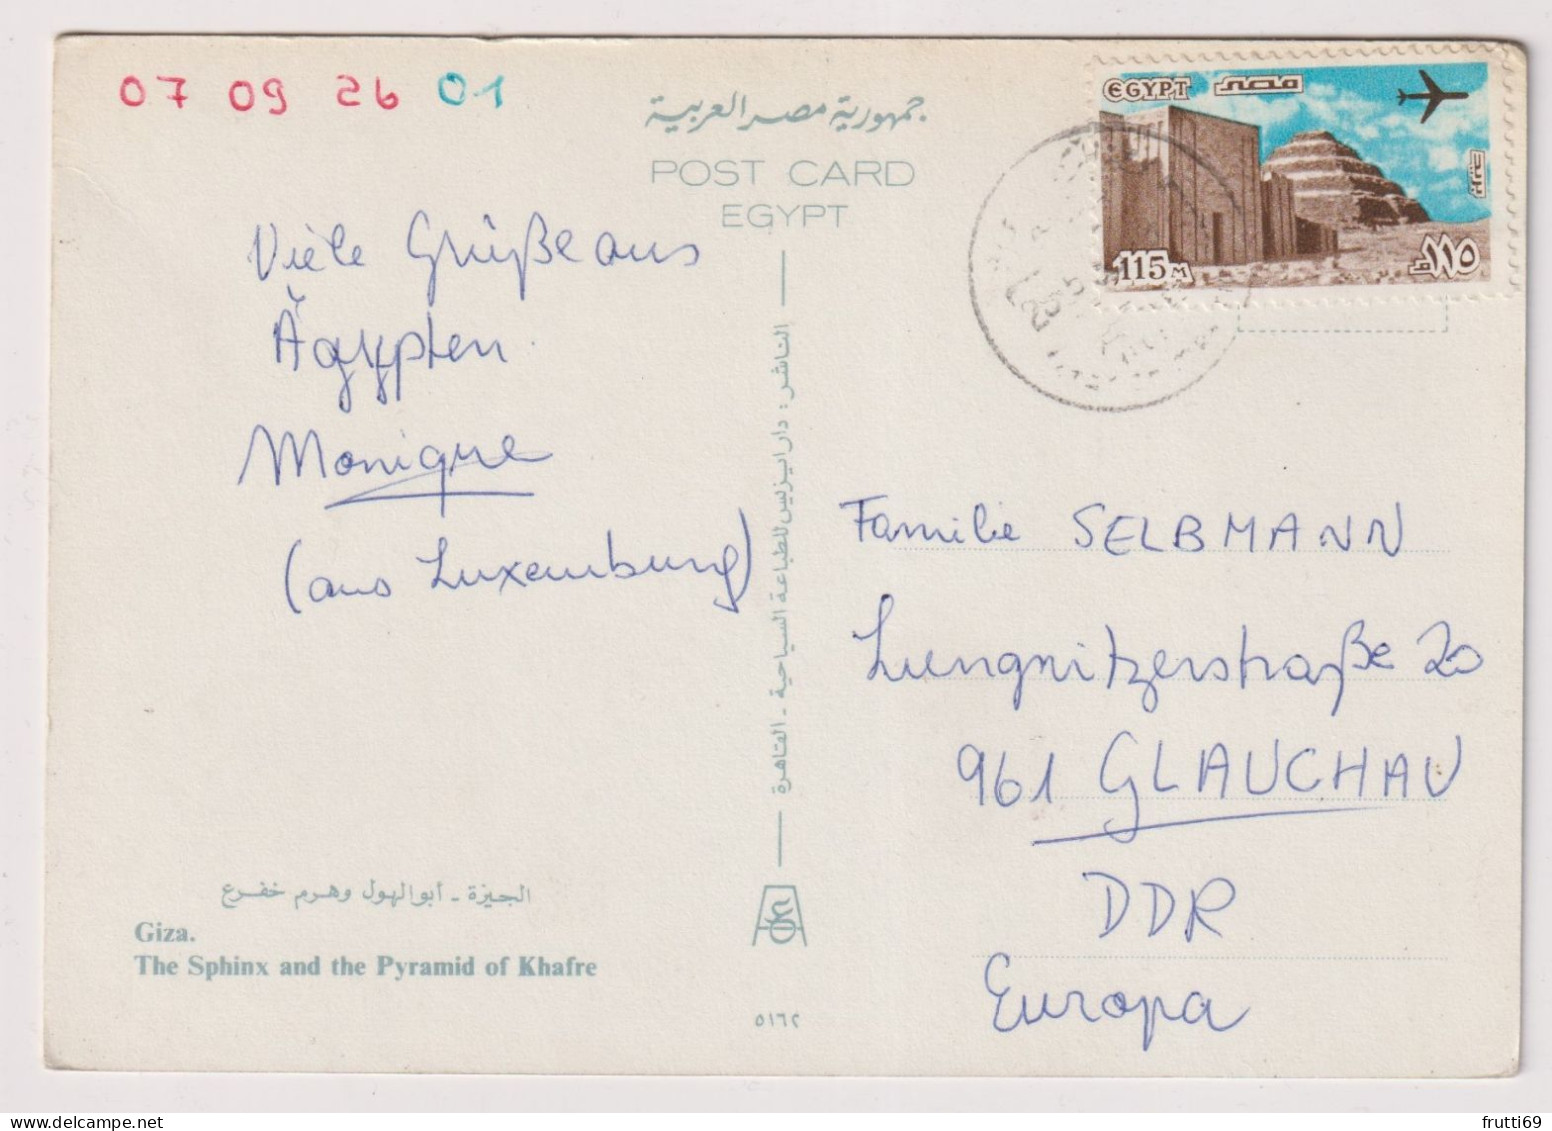 07 09 26 01
جمهورية مصر العربية
POST CARD
EGYPT
EGYPT مصر
115M ١١٥
Viele Grüße aus
Ägypten.
Monique
(aus Luxemburg)
الناشر: دار ايزيس للطباعة السياحية - القاهرة
Familie SELBMANN
Lungwitzerstraße 20
961 GLAUCHAU
DDR
Europa
الجيزة - أبو الهول وهرم خفرع
Giza.
The Sphinx and the Pyramid of Khafre
٥١٦٢
frutti69